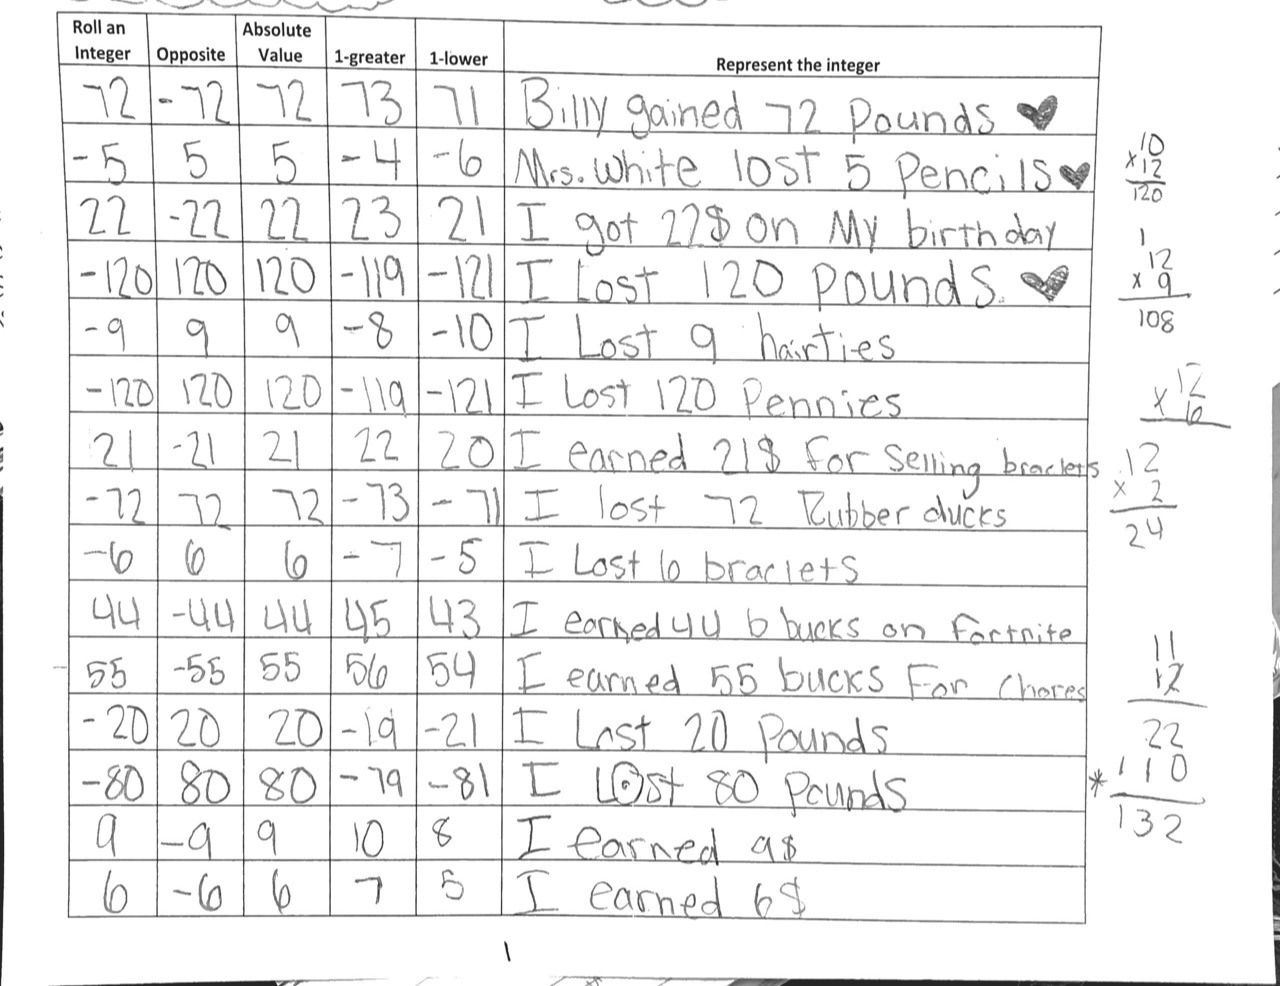 Roll an Integer Opposite Absolute Value 1-greater 1-lower Represent the integer
72 -72 72 73 71 Billy gained 72 Pounds
-5 5 5 -4 -6 Mrs. White lost 5 Pencils
22 -22 22 23 21 I got 22$ on My birthday
-120 120 120 -119 -121 I Lost 120 pounds.
-9 9 9 -8 -10 I Lost 9 hairties
-120 120 120 -119 -121 I Lost 120 Pennies
21 -21 21 22 20 I earned 21$ For Selling braclets
-72 72 72 -73 -71 I lost 72 Rubber ducks
-6 6 6 -7 -5 I Lost 6 braclets
44 -44 44 45 43 I earned 44 b bucks on Fortnite
55 -55 55 56 54 I earned 55 bucks For Chores
-20 20 20 -19 -21 I Lost 20 Pounds
-80 80 80 -79 -81 I LOst 80 Pounds
9 -9 9 10 8 I earned 9$
6 -6 6 7 5 I earned 6$
1
10
x 12
120
1
12
x 9
108
12
x 6
12
x 2
24
11
12
22
* 110
132